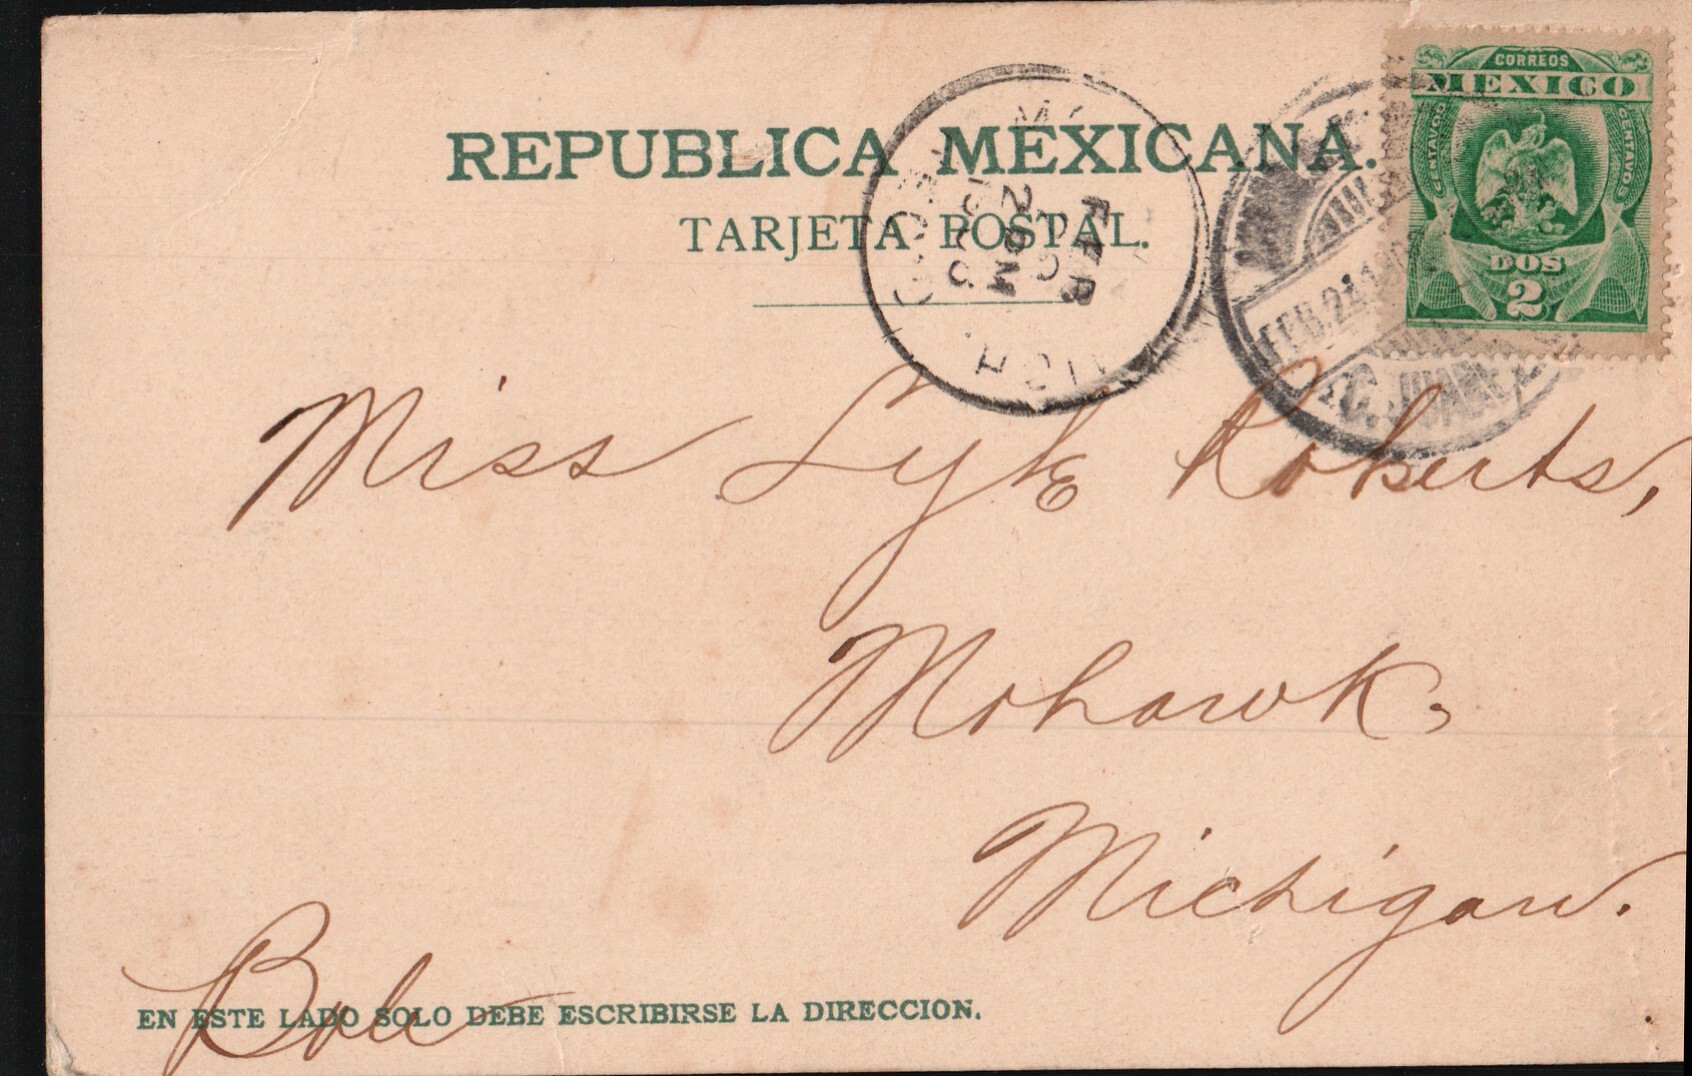 REPUBLICA MEXICANA.
TARJETA POSTAL.
CORREOS
MEXICO
CENTAVOS
CENTAVOS
DOS
2
FEB
2 PM
MICH.
FEB. 24
C. JUAREZ
Miss Lyle Roberts,
Mohawk,
Michigan.
EN ESTE LADO SOLO DEBE ESCRIBIRSE LA DIRECCION.